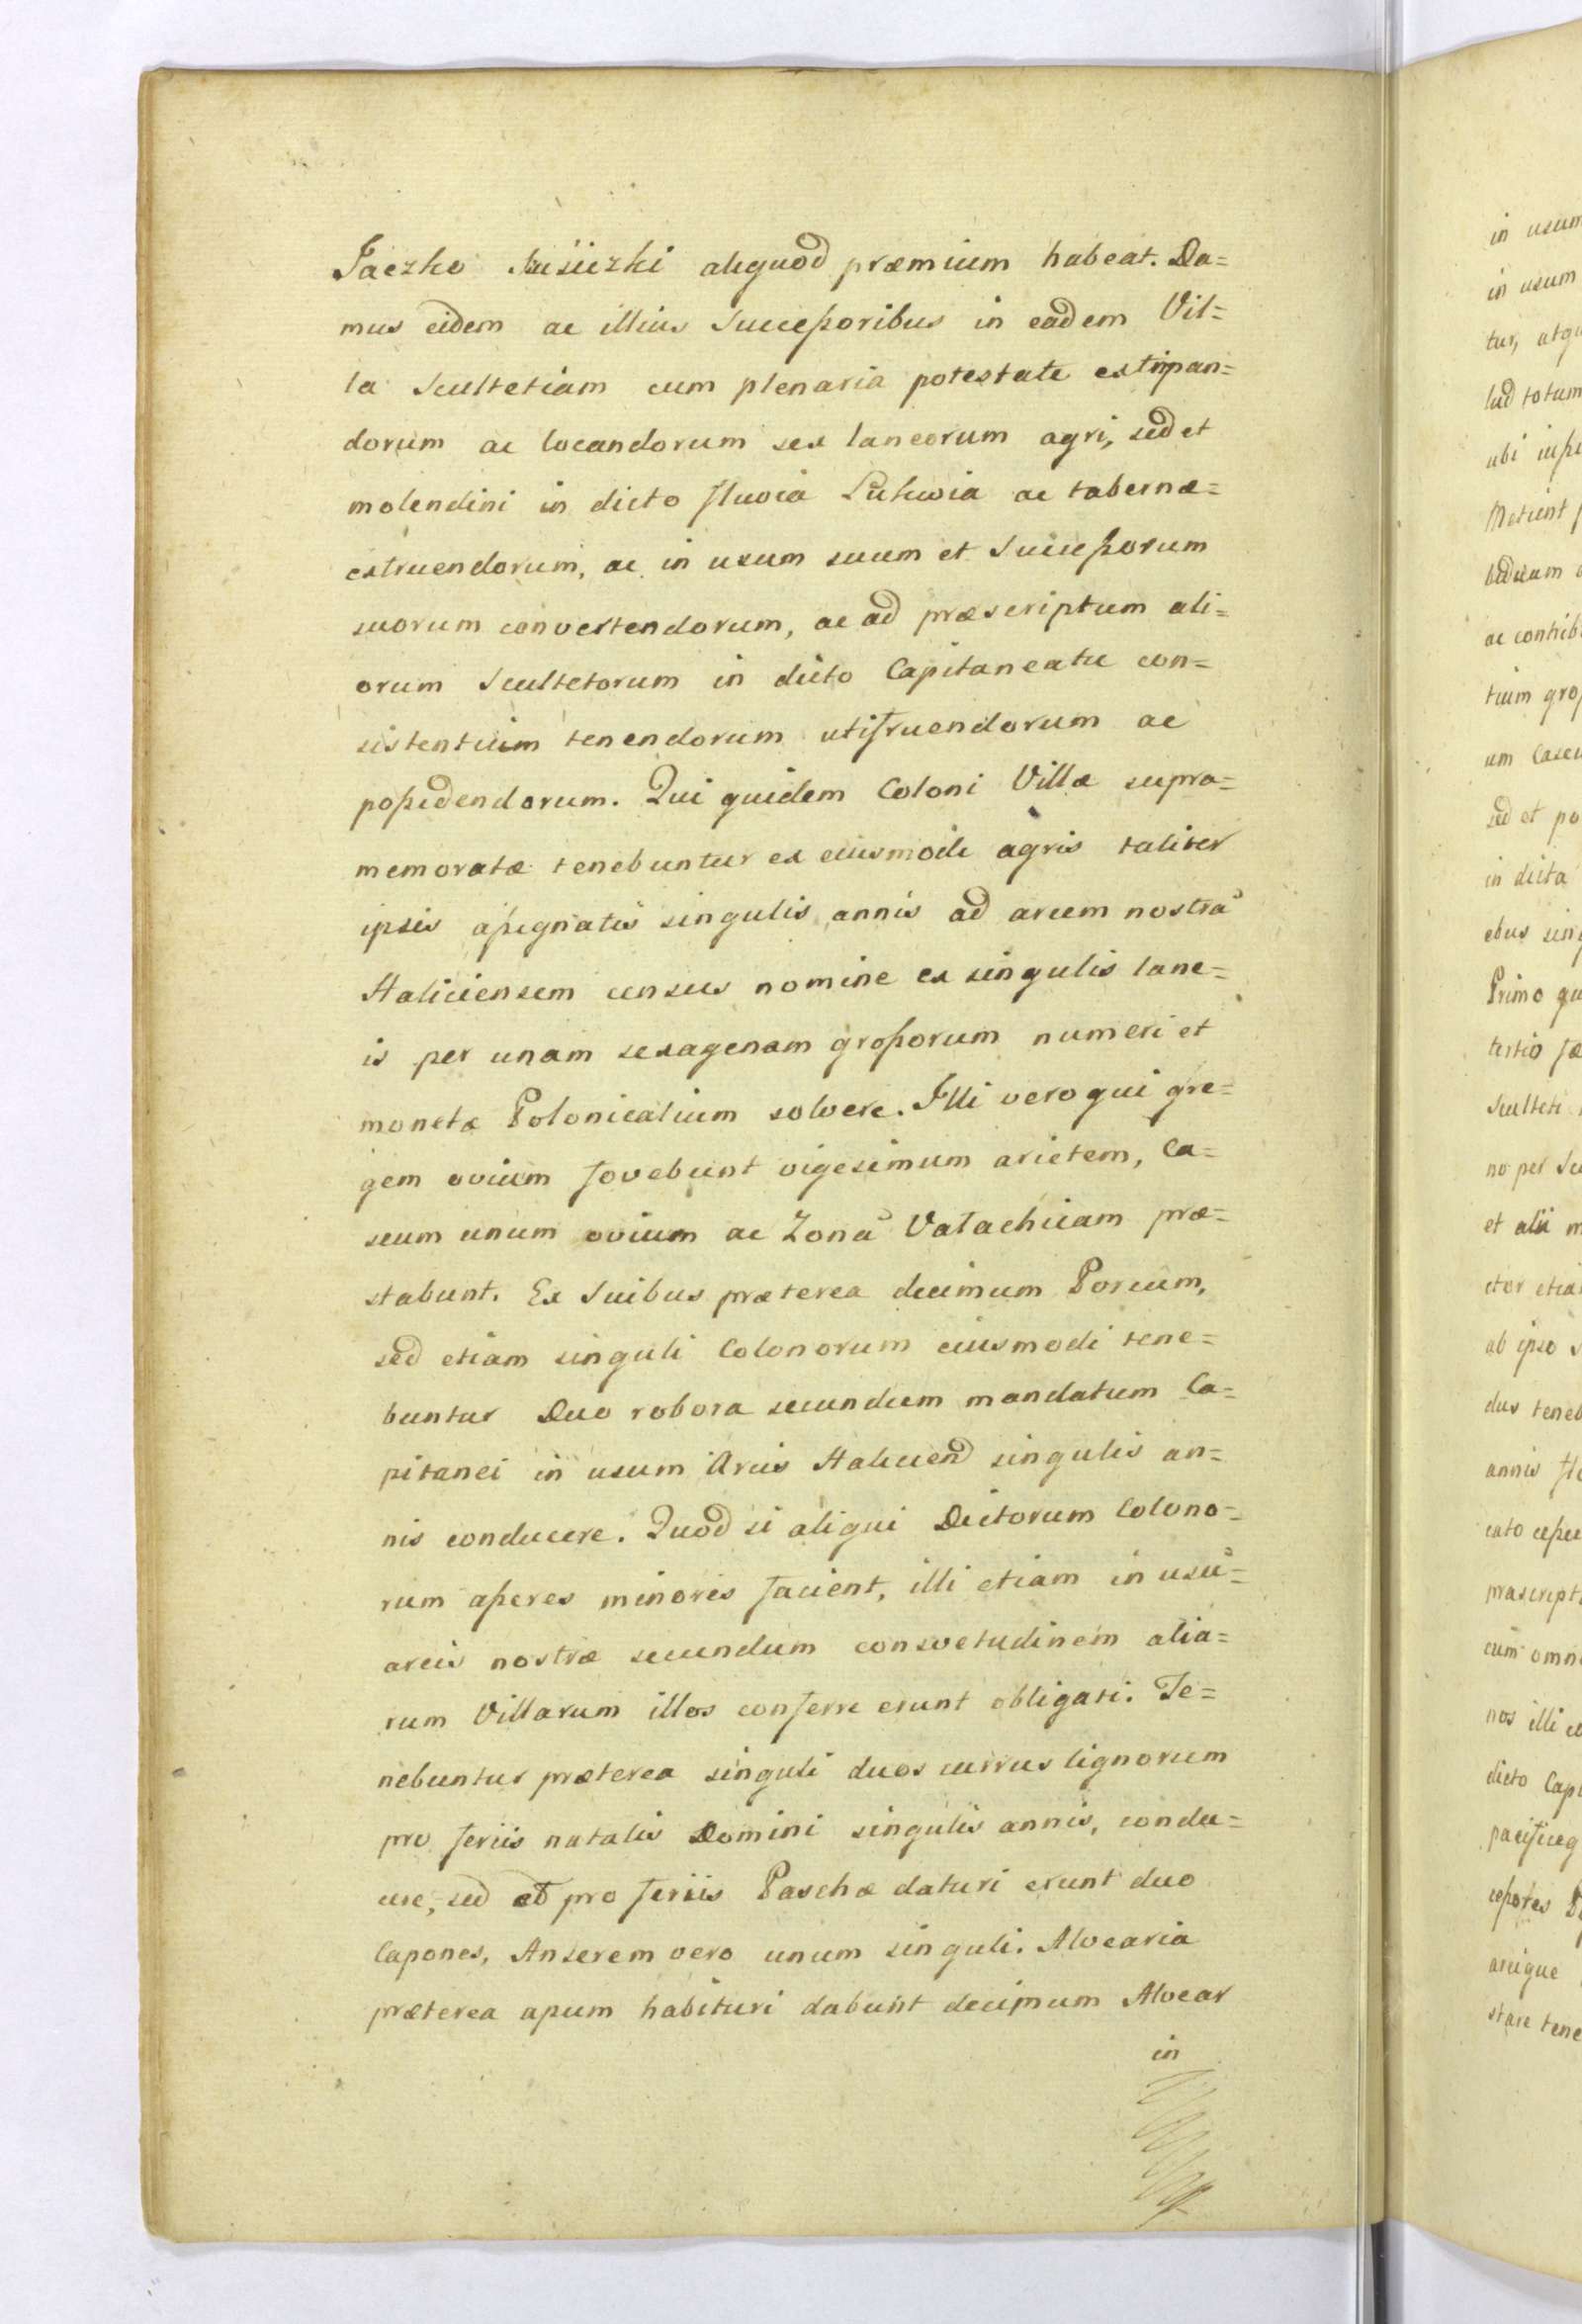 Jaczko Susiczki aliquod præmium habeat. Da=
mus eidem ac illius Successoribus in eadem Vil=
la Scultetiam cum plenaria potestate extirpan=
dorum ac locandorum sex laneorum agri, sed et
molendini in dicto fluvia Lukwia ac tabernæ=
extruendorum, ac in usum suum et Successorum
suorum convertendorum, ac ad præscriptum ali=
orum Scultetorum in dicto Capitaneatu con=
sistentium tenendorum utifruendorum ac
possidendorum. Qui quidem Coloni Villæ supra=
memoratæ tenebuntur ex eiusmodi agris taliter
ipsis assignatis singulis annis ad arcem nostrã
Haliciensem census nomine ex singulis lane=
is per unam sexagenam grossorum numeri et
monetæ Polonicalium solvere. Illi vero qui gre=
gem ovium fovebunt vigesimum arietem, Ca=
seum unum ovium ac Zonã Valachicam præ=
stabunt. Ex Suibus præterea decimum Porcum,
sed etiam singuli Colonorum eiusmodi tene=
buntur Duo robora secundum mandatum Ca=
pitanei in usum Arcis Haliciend singulis an=
nis conducere. Quod si aliqui Dictorum Colono=
rum asseres minoris facient, illi etiam in usũ=
arcis nostræ secundum consvetudinem alia=
rum Villarum illos conferre erunt obligati. Te=
nebuntur præterea singuli duos currus lignorum
pro feriis natalis Domini singulis annis, condu=
cere, sed et pro feriis Paschæ daturi erunt duo
Capones, Anserem vero unum singuli. Alvearia
præterea apum habituri dabunt decimum Alvear
in
in usum
in usum
lud totum
ubi
tium
sed et po
in dicta
Primo qu
tertio
Sculteti
et alii m
ab ipso
annis
cum omn
nos illi
dicto Capi
stare tene